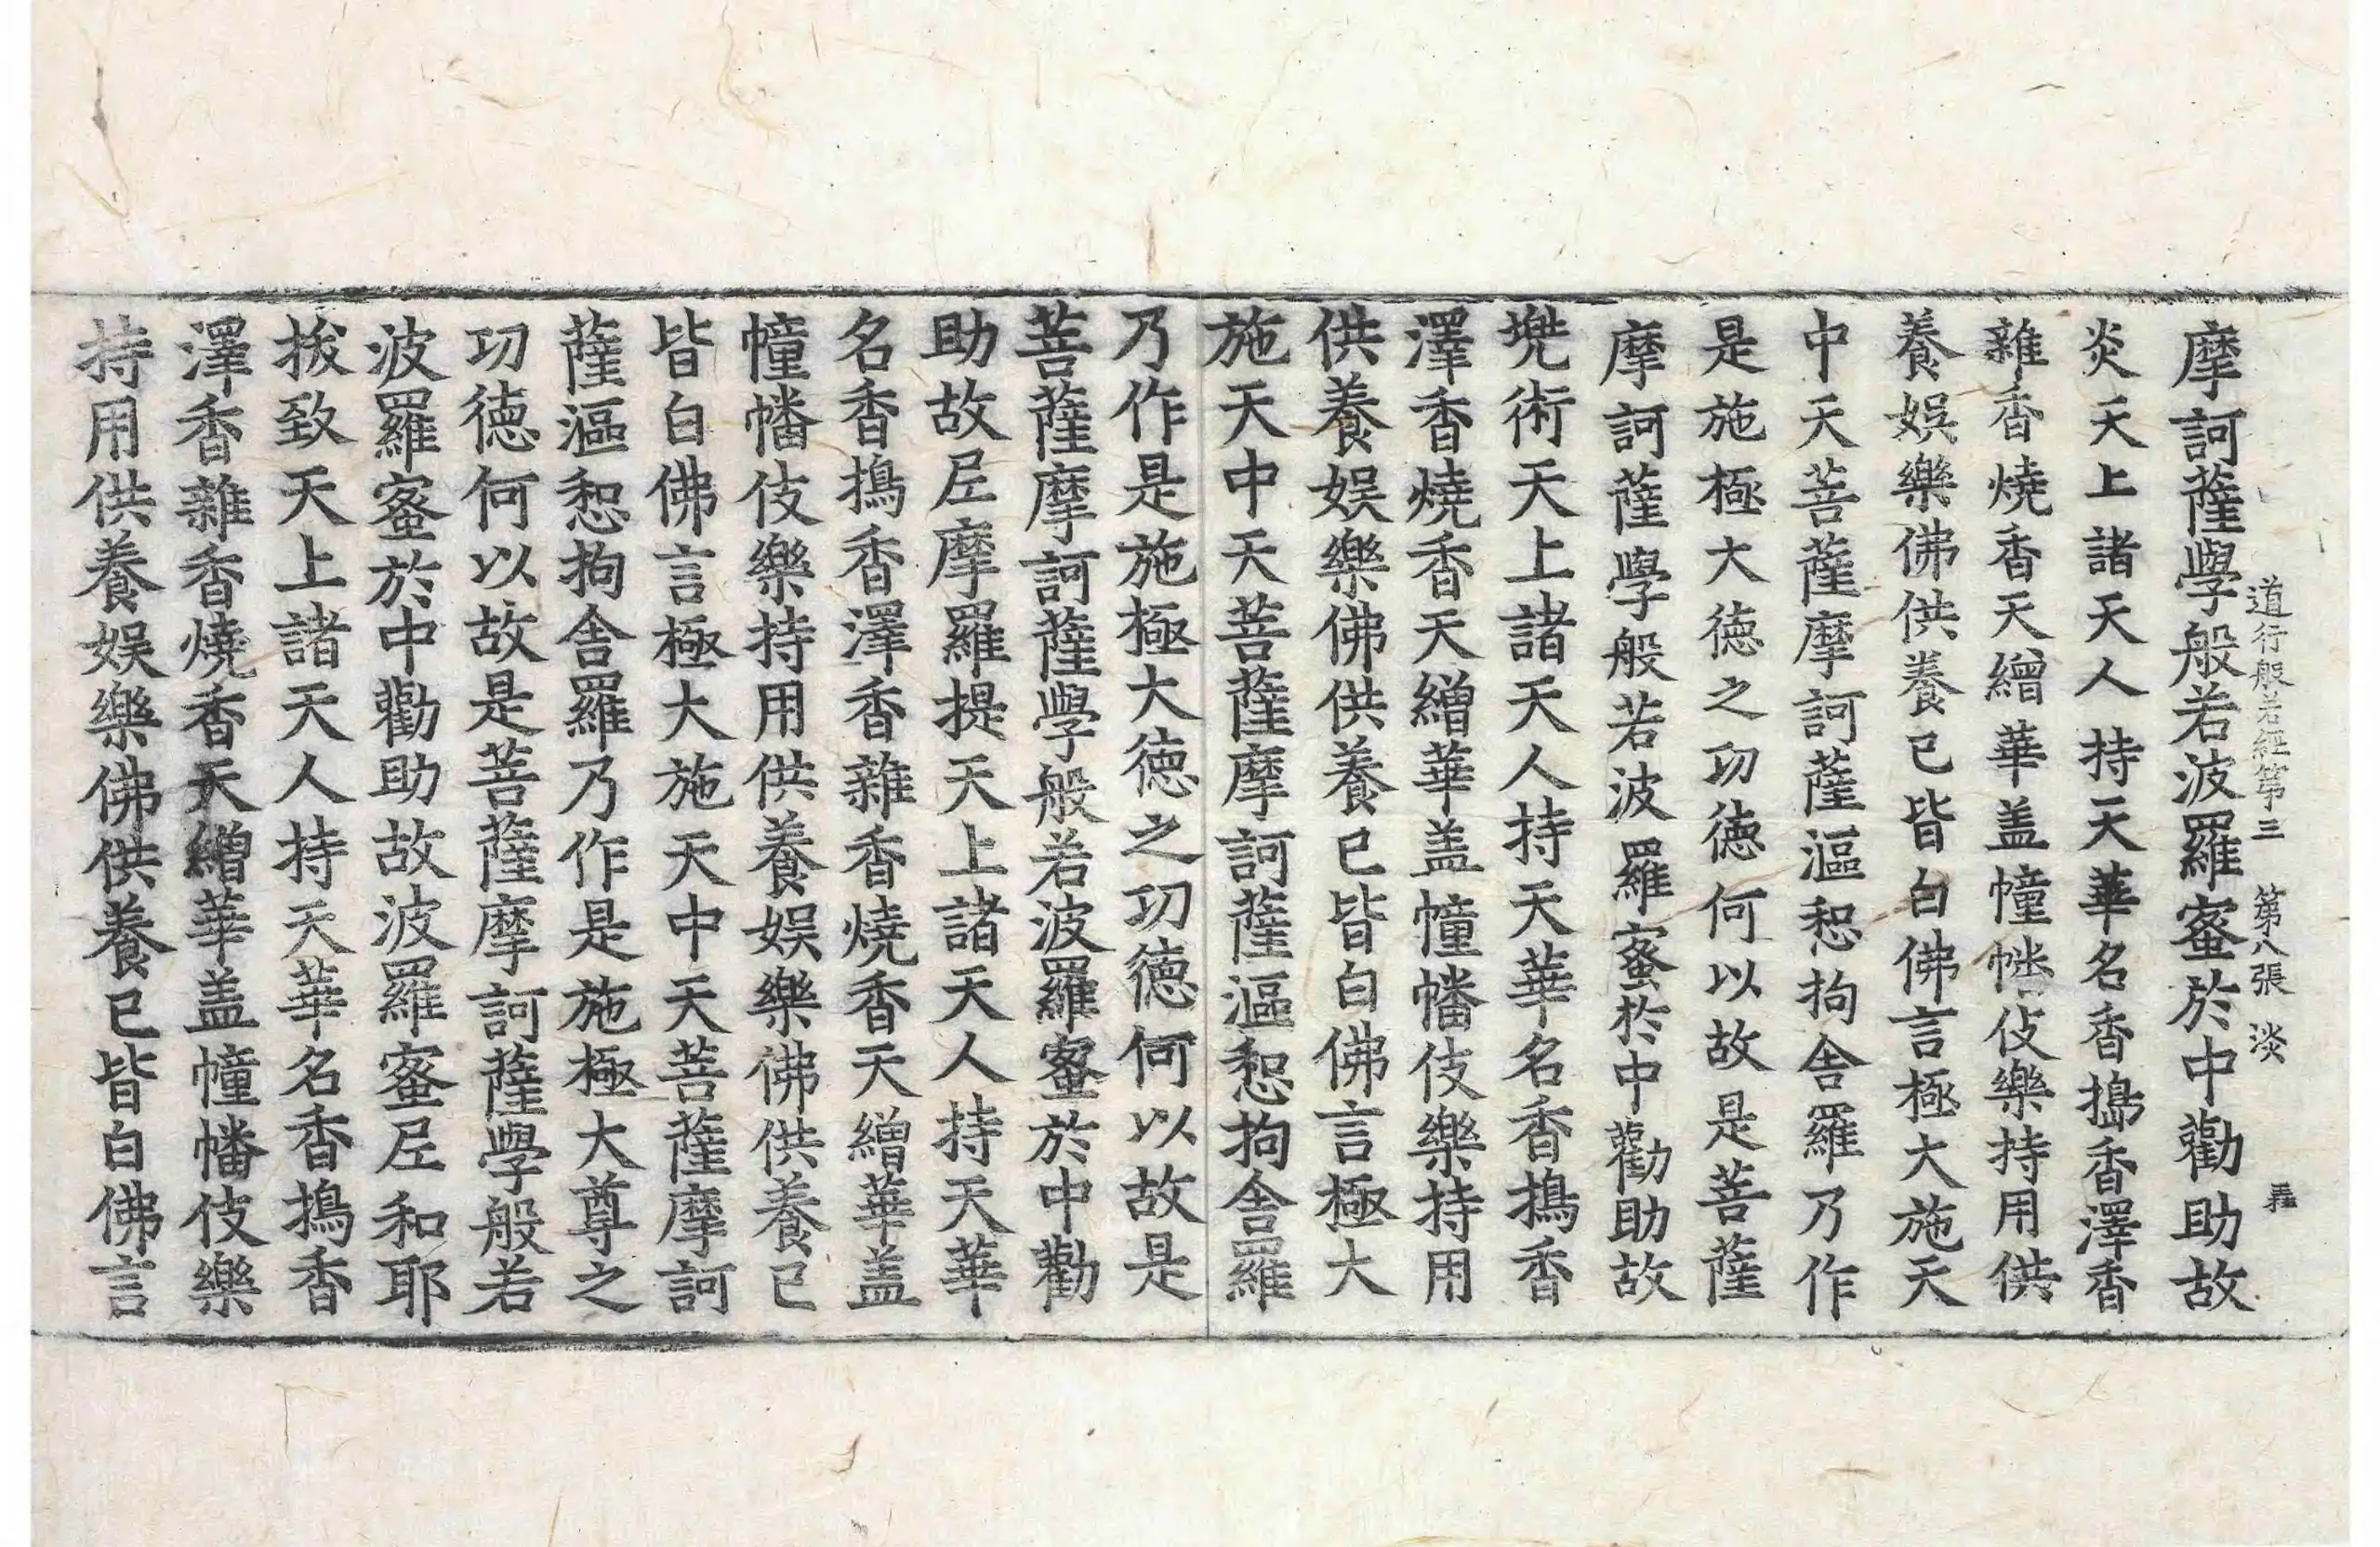 道行般若經第三 第八張 淡
摩訶薩學般若波羅蜜於中勸助故
炎天上諸天人持天華名香搗香澤香
雜香燒香天繒華盖幢幡伎樂持用供
養娛樂佛供養已皆白佛言極大施天
中天菩薩摩訶薩漚惒拘舍羅乃作
是施極大德之功德何以故是菩薩
摩訶薩學般若波羅蜜於中勸助故
兠術天上諸天人持天華名香搗香
澤香燒香天繒華盖幢幡伎樂持用
供養娛樂佛供養已皆白佛言極大
施天中天菩薩摩訶薩漚惒拘舍羅
乃作是施極大德之功德何以故是
菩薩摩訶薩學般若波羅蜜於中勸
助故尼摩羅提天上諸天人持天華
名香搗香澤香雜香燒香天繒華盖
幢幡伎樂持用供養娛樂佛供養已
皆白佛言極大施天中天菩薩摩訶
薩漚惒拘舍羅乃作是施極大尊之
功德何以故是菩薩摩訶薩學般若
波羅蜜於中勸助故波羅蜜尼和耶
拔致天上諸天人持天華名香搗香
澤香雜香燒香天繒華盖幢幡伎樂
持用供養娛樂佛供養已皆白佛言